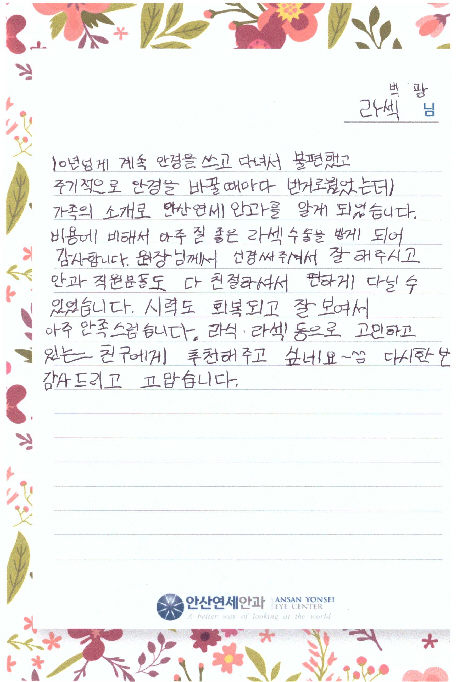 벽 팡
라섹 님
10년넘게 계속 안경을 쓰고 다녀서 불편했고
주기적으로 안경을 바꿀때마다 번거로웠었는데
가족의 소개로 안산연세안과를 알게 되었습니다.
비용에 비해서 아주 질 좋은 라섹수술을 받게 되어
감사합니다. 원장님께서 신경써주셔서 잘 해주시고
안과 직원분들도 다 친절하셔서 편하게 다닐 수
있었습니다. 시력도 회복되고 잘 보여서
아주 만족스럽습니다. 라식·라섹 등으로 고민하고
있는 친구에게 추천해주고 싶네요~^^ 다시한번
감사드리고 고맙습니다.
안산연세안과 ANSAN YONSEI
EYE CENTER
A better way of looking at the world